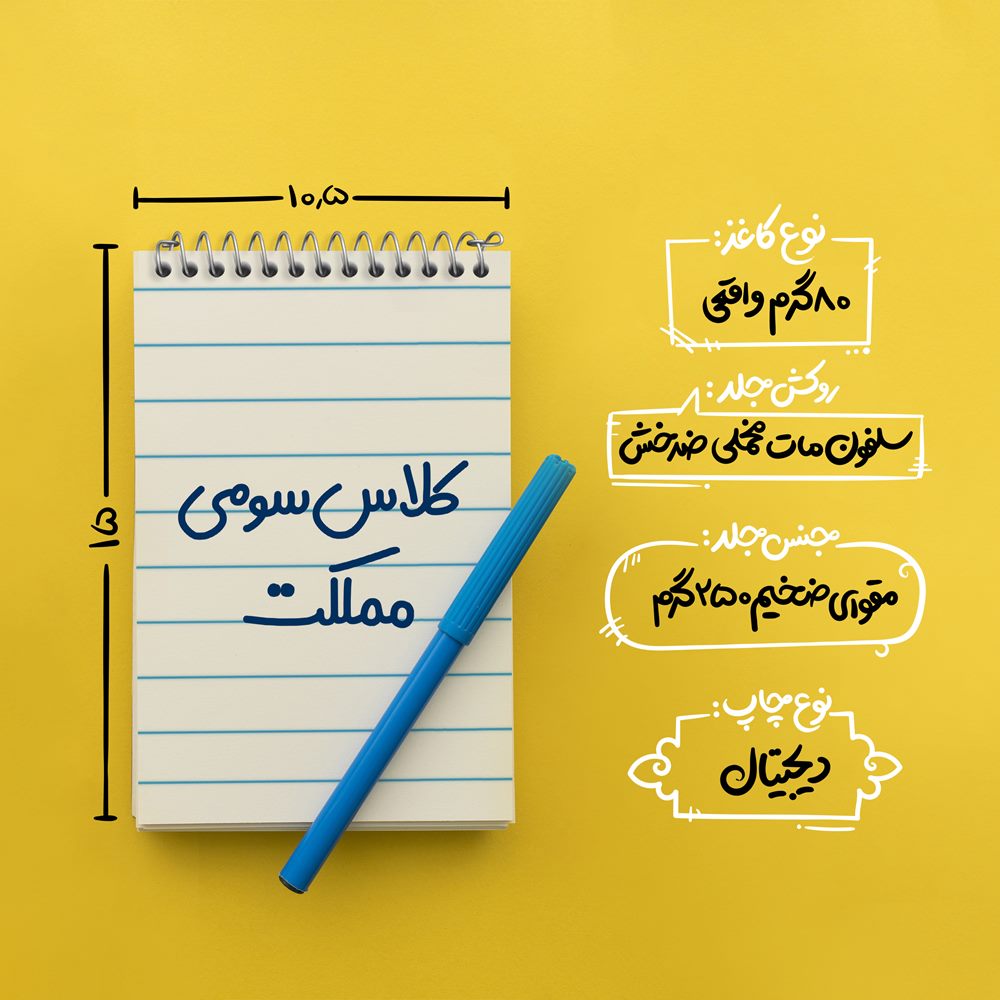 ۱۰٫۵
۱۵
کلاس سومی
مملکت
نوع کاغذ:
۸۰ گرم واقعی
روکش جلد:
سلفون مات مخملی ضدخش
جنس جلد:
مقوای ضخیم ۲۵۰ گرم
نوع چاپ:
دیجیتال